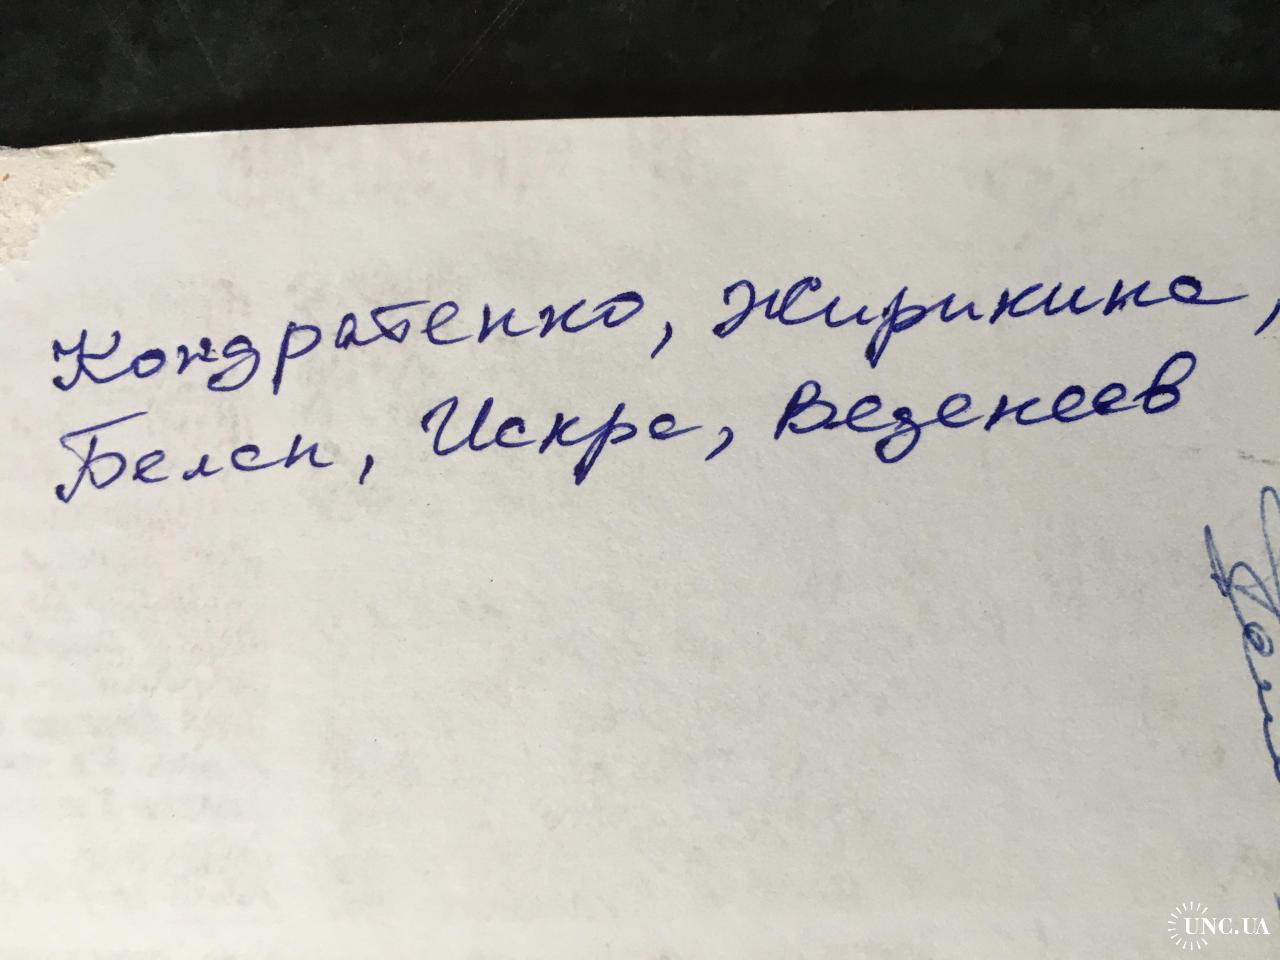 Кондратенко, Жирикина,
Белан, Искра, Веденеев
UNC.UA